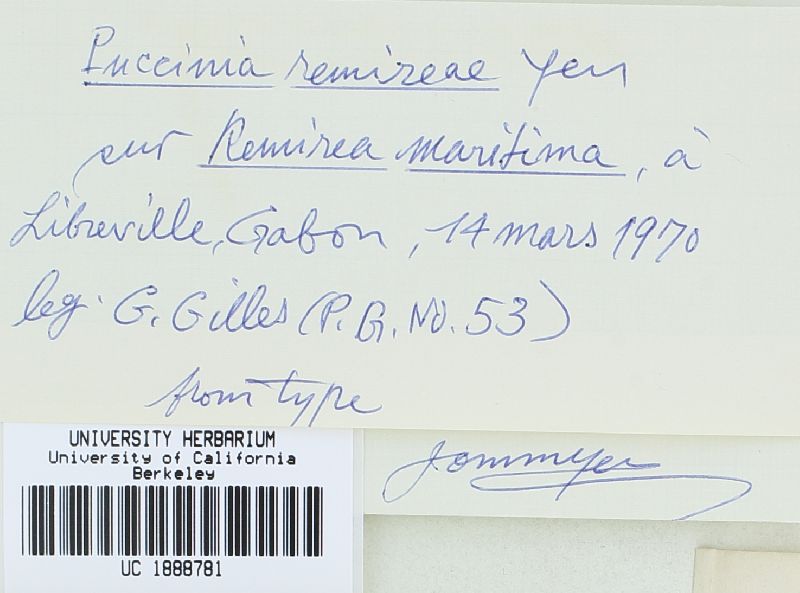 Puccinia remireae Yen
sur Remirea maritima, à
Libreville, Gabon, 14 mars 1970
leg. G. Gilles (P.G. No. 53)
from type
UNIVERSITY HERBARIUM
University of California
Berkeley
UC 1888781